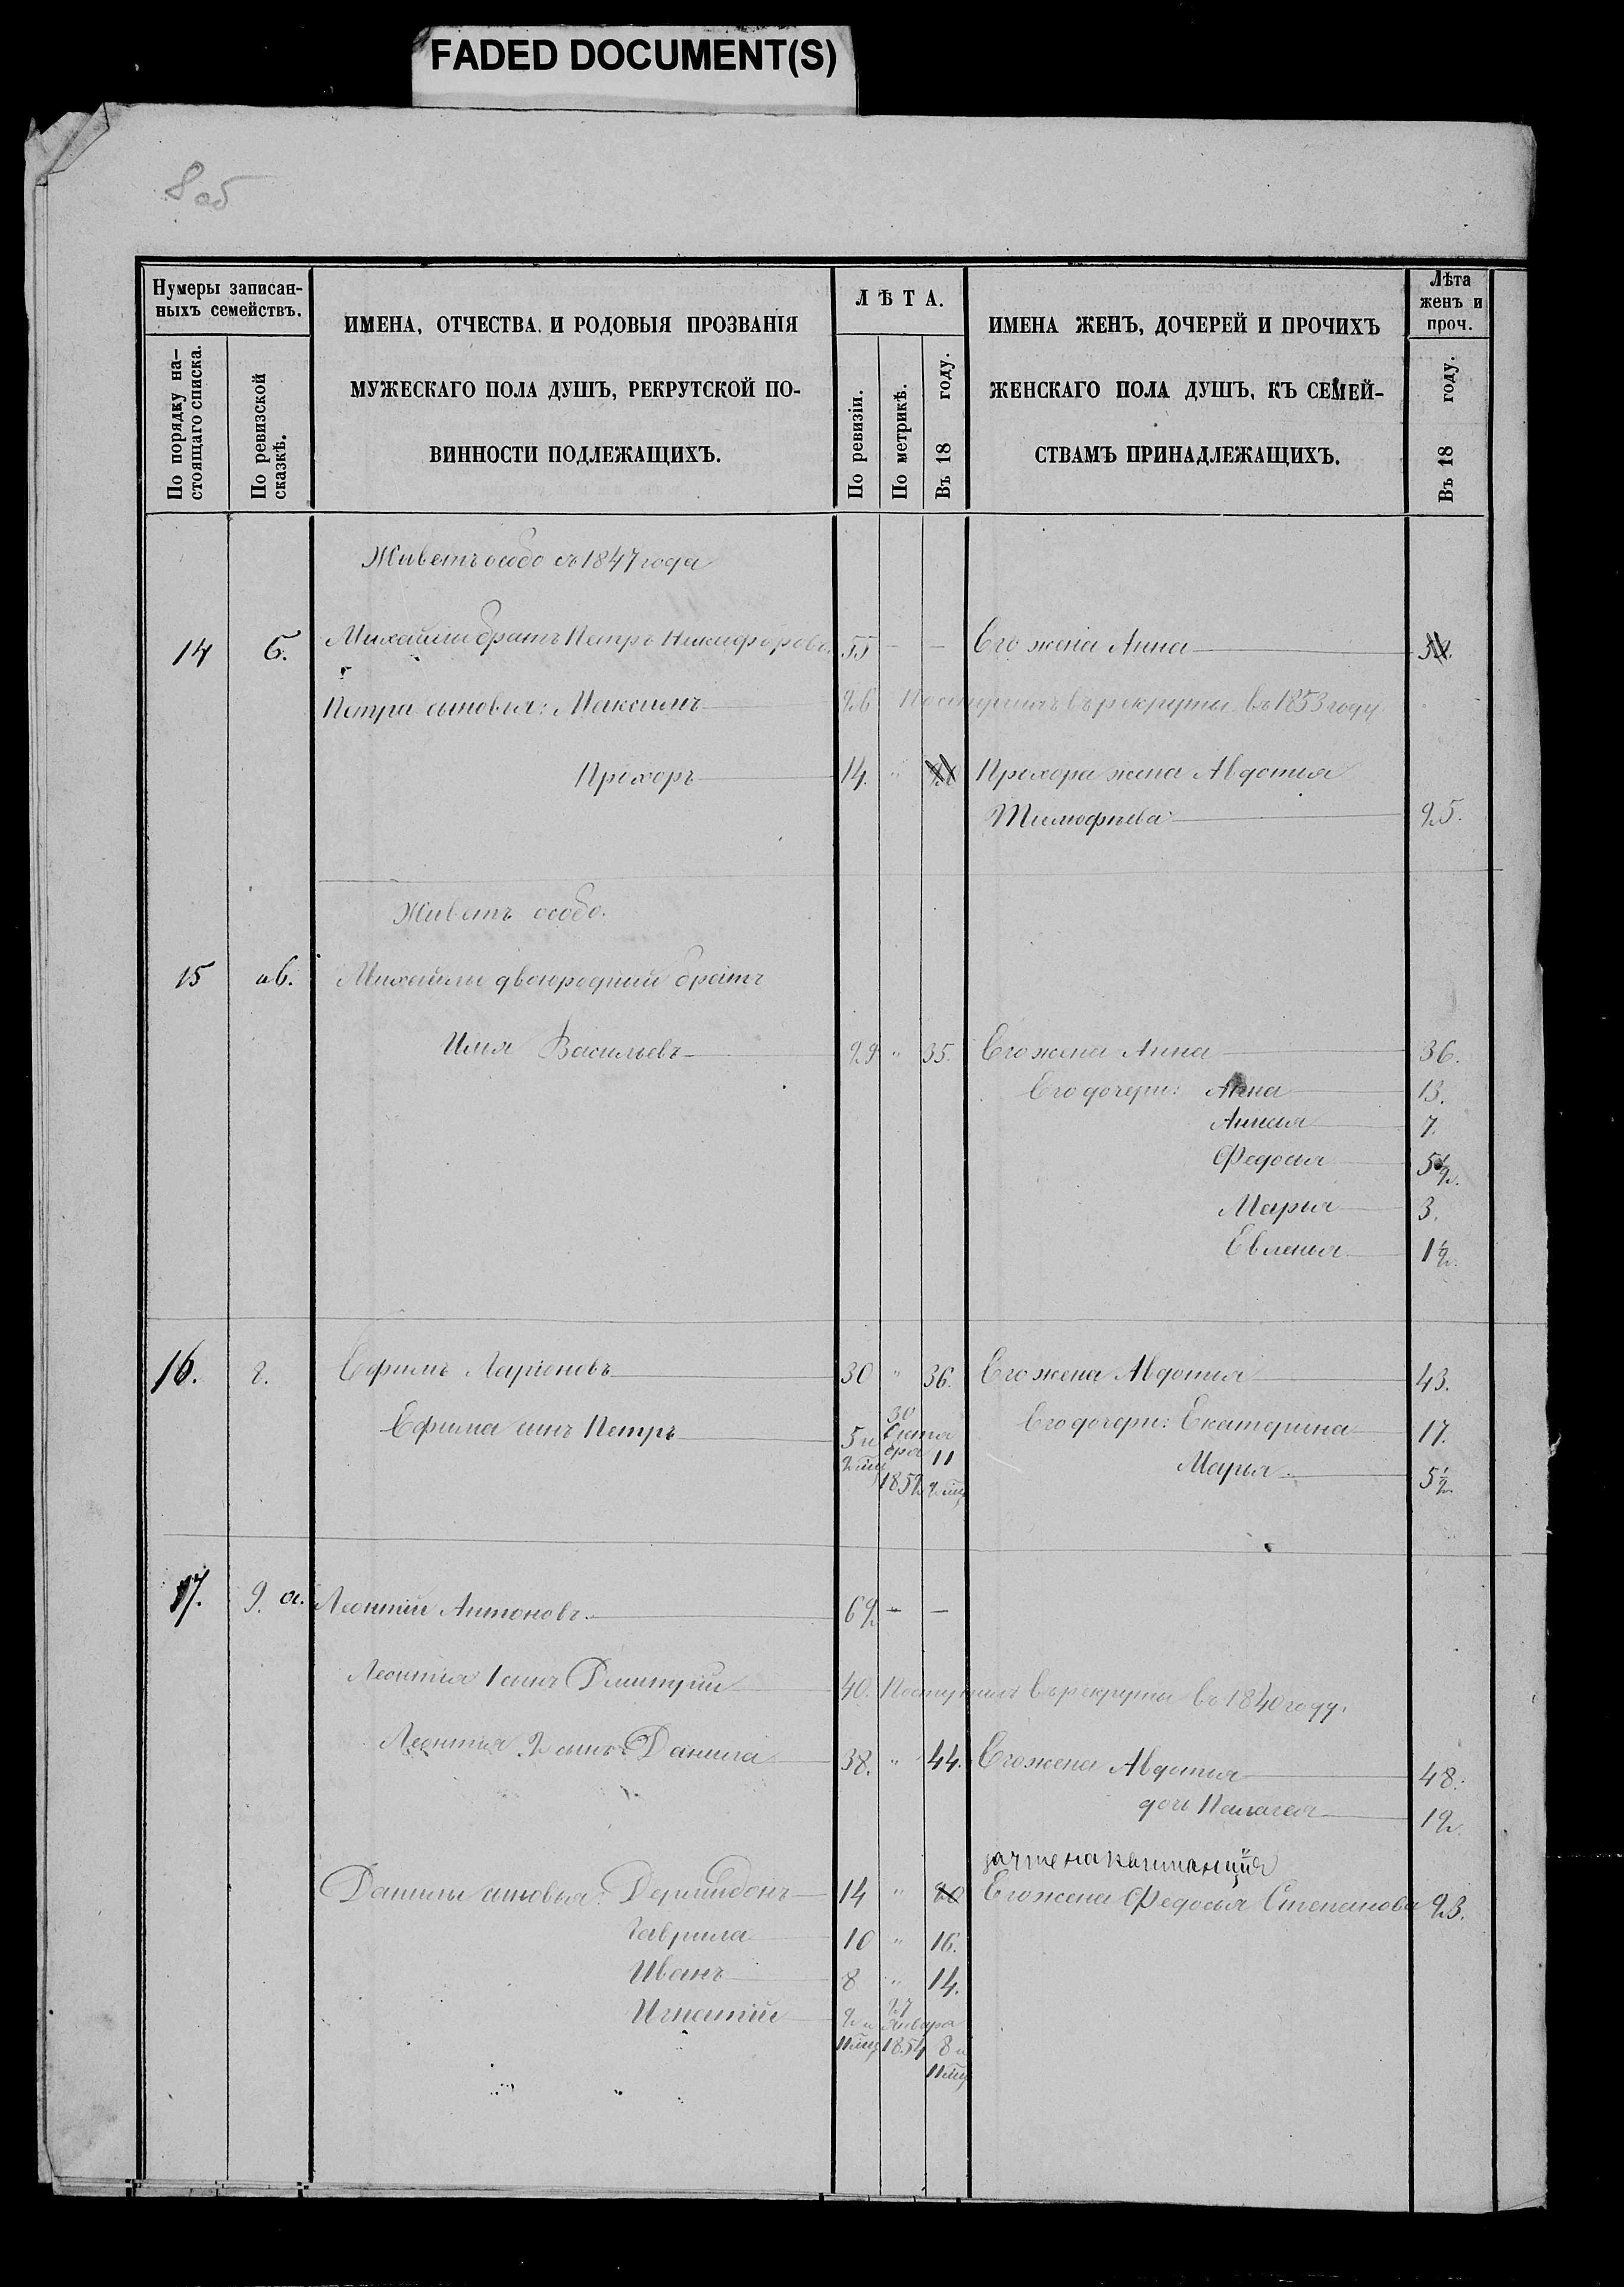 FADED DOCUMENT(S)
8 об
Нумеры записан-
ныхъ семействъ.
По порядку на-
стоящаго списка.
По ревизской
сказкѣ.
ИМЕНА, ОТЧЕСТВА И РОДОВЫЯ ПРОЗВАНІЯ
МУЖЕСКАГО ПОЛА ДУШЪ, РЕКРУТСКОЙ ПО-
ВИННОСТИ ПОДЛЕЖАЩИХЪ.
ЛѢТА.
По ревизіи.
По метрикѣ.
Въ 18 году.
ИМЕНА ЖЕНЪ, ДОЧЕРЕЙ И ПРОЧИХЪ
ЖЕНСКАГО ПОЛА ДУШЪ, КЪ СЕМЕЙ-
СТВАМЪ ПРИНАДЛЕЖАЩИХЪ.
Лѣта
женъ и
проч.
Въ 18 году.
Живетъ особо съ 1847 года
14 б. Михайлы братъ Петръ Никифоровъ 55 - - Его жена Анна
Петра сыновья: Максимъ 26 Поступилъ въ рекруты въ 1853 году
Прохоръ 14. " 20 Прохора жена Авдотья
Тимофѣева 25.
Живетъ особо.
15 Михайлы двоюродный братъ
Илья Васильевъ 29 " 35. Его жена Анна 36.
Его дочери: Анна 13.
Анисья 7.
Федосья 5½.
Марья 3.
Евленья 1½.
16. г. Ефимъ Ларіоновъ 30 " 36. Его жена Авдотья 43.
Ефима сынъ Петръ 5 и 2 мѣц 30 Октя бря 1851 11 2 мѣц Его дочери: Екатерина 17.
Марья 5½.
17. 9. а. Леонтій Антоновъ 62 - -
Леонтія 1 сынъ Дмитрій 40. Поступилъ въ рекруты въ 1840 году.
Леонтія 2 сынъ Данила 38. " 44. Его жена Авдотья 48.
дочь Пелагея 12.
зачтена квитанція
Данилы сыновья: Дермидонъ 14 " 20 Его жена Федосья Степанова 23.
Гаврила 10 " 16.
Иванъ 8 " 14.
Игнатій 2 и 11 мѣц 27 Января 1854 8 и 11 мѣц